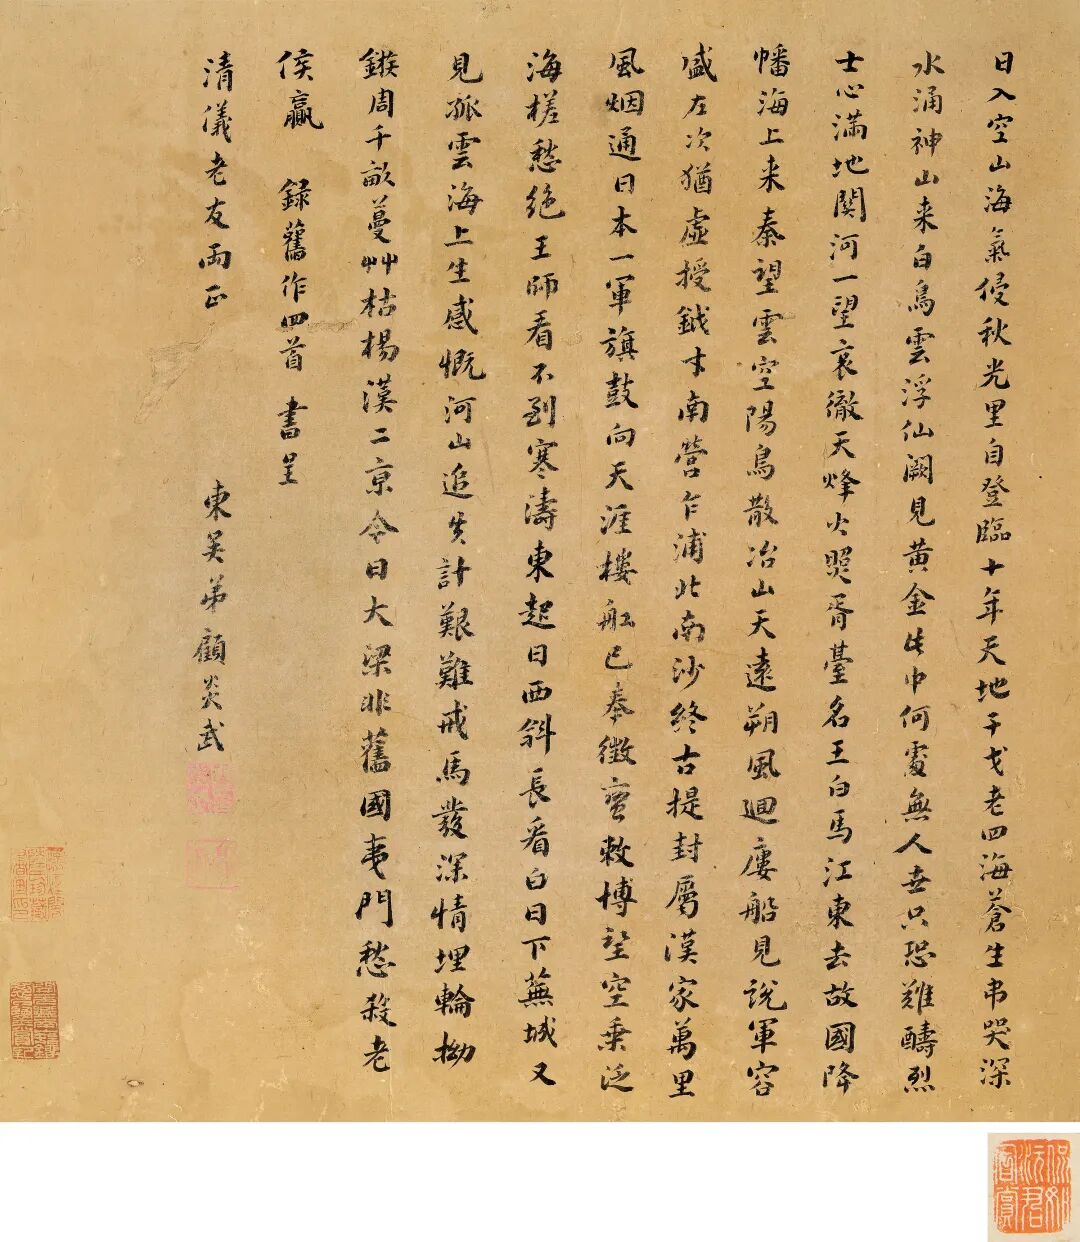 日入空山海氣侵秋光里自登臨十年天地干戈老四海蒼生弔哭深
水涌神山来白鳥雲浮仙闕見黄金此中何處無人世只恐難醻烈
士心滿地関河一望哀徹天烽火照胥臺名王白馬江東去故國降
幡海上来秦望雲空陽鳥散冶山天遠朔風迴廔船見說軍容
盛左次猶虛授鉞才南營乍浦北南沙終古提封屬漢家萬里
風烟通日本一軍旗鼓向天涯樓舩已奉徴蛮敕博望空乗泛
海槎愁絶王師看不到寒濤東起日西斜長看白日下蕪城又
見孤雲海上生感慨河山追失計艱難戎馬發深情埋輪拗
鏃周千畝蔓艸枯楊漢二京今日大梁非舊國夷門愁殺老
侯嬴 録舊作四首 書呈
清儀老友兩正
東吴弟顧炎武